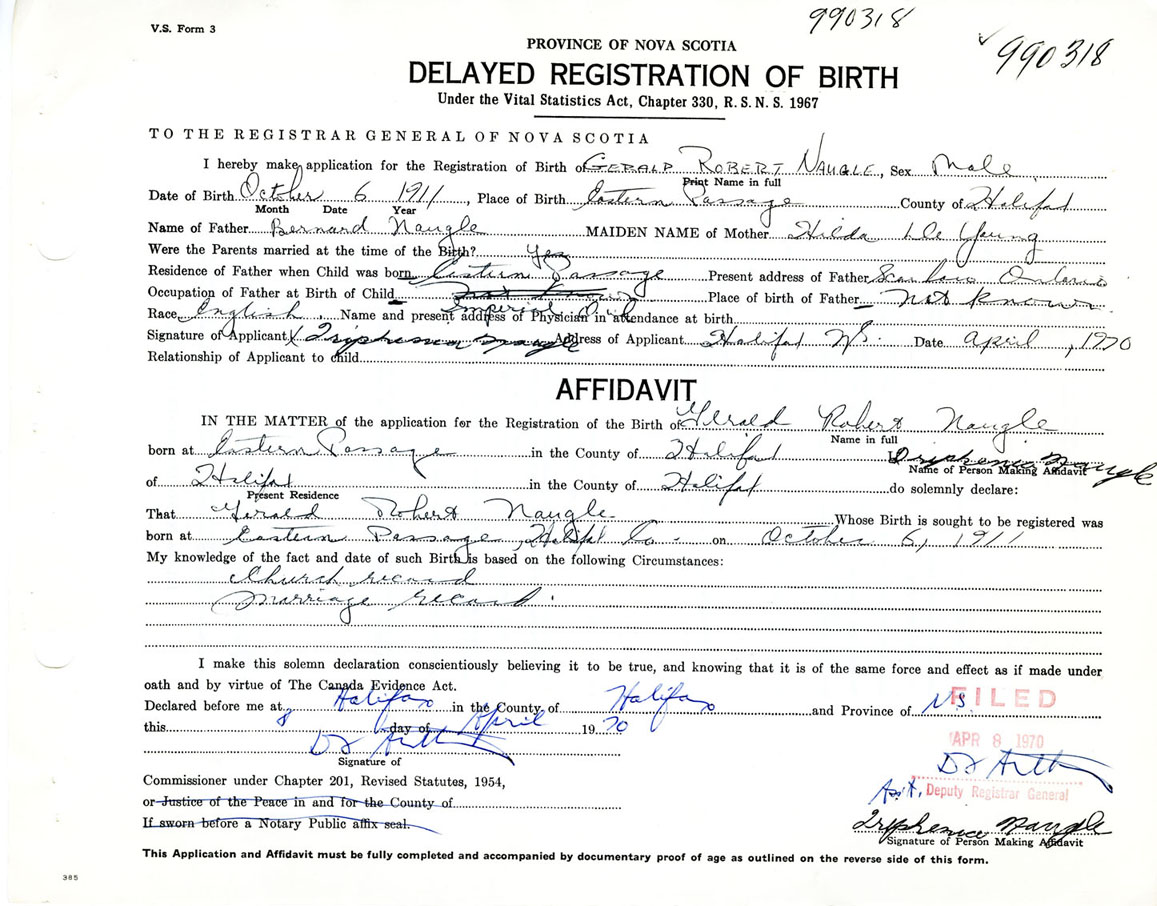 V.S. Form 3
990318
990318
PROVINCE OF NOVA SCOTIA
DELAYED REGISTRATION OF BIRTH
Under the Vital Statistics Act, Chapter 330, R. S. N. S. 1967
TO THE REGISTRAR GENERAL OF NOVA SCOTIA
I hereby make application for the Registration of Birth of GERALD ROBERT NAUGLE, Sex Male
Print Name in full
Date of Birth October 6 1911, Place of Birth Eastern Passage County of Halifax
Month Date Year
Name of Father Bernard Naugle MAIDEN NAME of Mother Hilda De Young
Were the Parents married at the time of the Birth? Yes
Residence of Father when Child was born Eastern Passage Present address of Father Ontario
Occupation of Father at Birth of Child not known Place of birth of Father not known
Imperial
Race English, Name and present address of Physician in attendance at birth
Signature of Applicant X Tryphenia Naugle Address of Applicant Halifax N.S. Date April, 1970
Relationship of Applicant to child
AFFIDAVIT
IN THE MATTER of the application for the Registration of the Birth of Gerald Robert Naugle
Name in full
born at Eastern Passage in the County of Halifax I, Tryphenia Naugle
Name of Person Making Affidavit
of Halifax in the County of Halifax do solemnly declare:
Present Residence
That Gerald Robert Naugle Whose Birth is sought to be registered was
born at Eastern Passage, Halifx Co. on October 6, 1911
My knowledge of the fact and date of such Birth is based on the following Circumstances:
Church record
Marriage record.
I make this solemn declaration conscientiously believing it to be true, and knowing that it is of the same force and effect as if made under
oath and by virtue of The Canada Evidence Act.
Declared before me at Halifax in the County of Halifax and Province of N.S.
FILED
this 8 day of April 1970
APR 8 1970
Signature of
Commissioner under Chapter 201, Revised Statutes, 1954,
Asst. Deputy Registrar General
or Justice of the Peace in and for the County of
If sworn before a Notary Public affix seal.
Tryphenia Naugle
Signature of Person Making Affidavit
This Application and Affidavit must be fully completed and accompanied by documentary proof of age as outlined on the reverse side of this form.
385